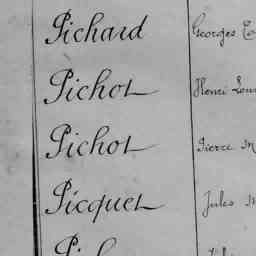 Pichard Georges
Pichot Henri
Pichot Pierre M
Picquet Jules